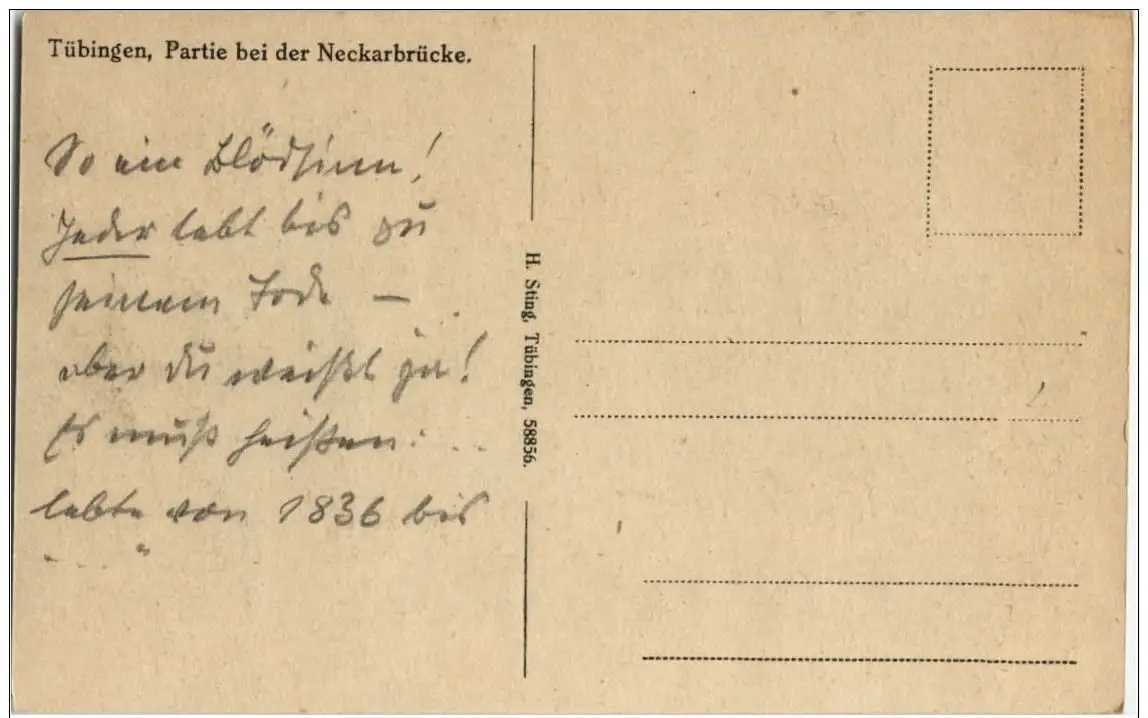 Tübingen, Partie bei der Neckarbrücke.
So ein Blödsinn!
Jeder lebt bis zu
seinem Tode —
aber du weißt ja!
Es muß heißen: ..
lebte von 1836 bis
. . . . "
H. Sting, Tübingen, 58856.